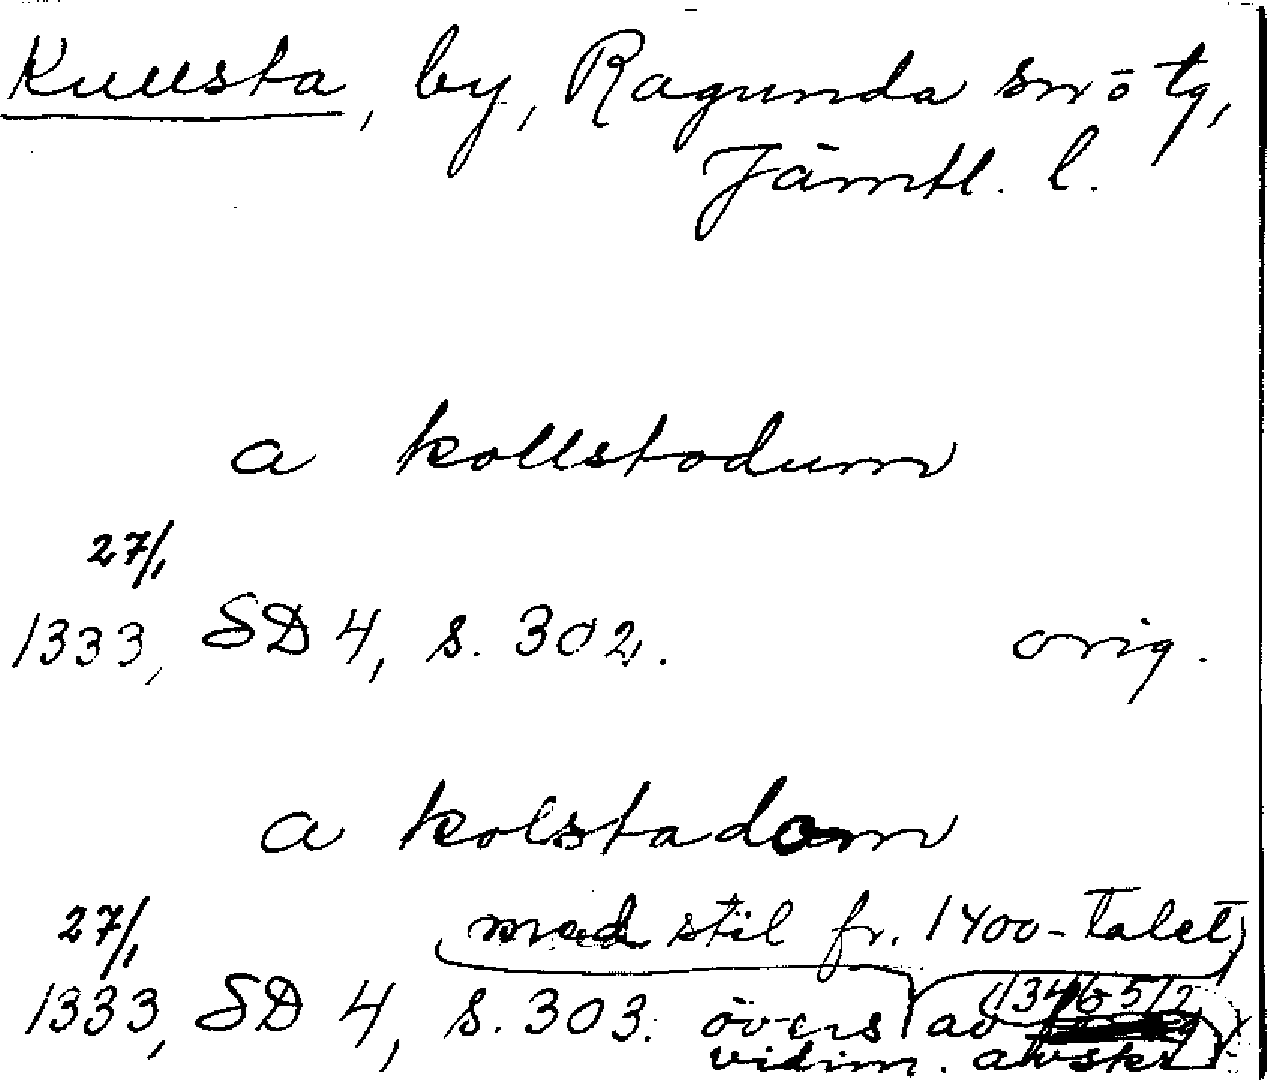 Kullsta, by, Ragunda sn o tg,
Jämtl. l.
a kollstodum
27/1
1333, SD 4, s. 302. orig.
a kolstadom
27/1 med stil fr. 1400-talet
1333, SD 4, s. 303. övers av
vidim. avskr